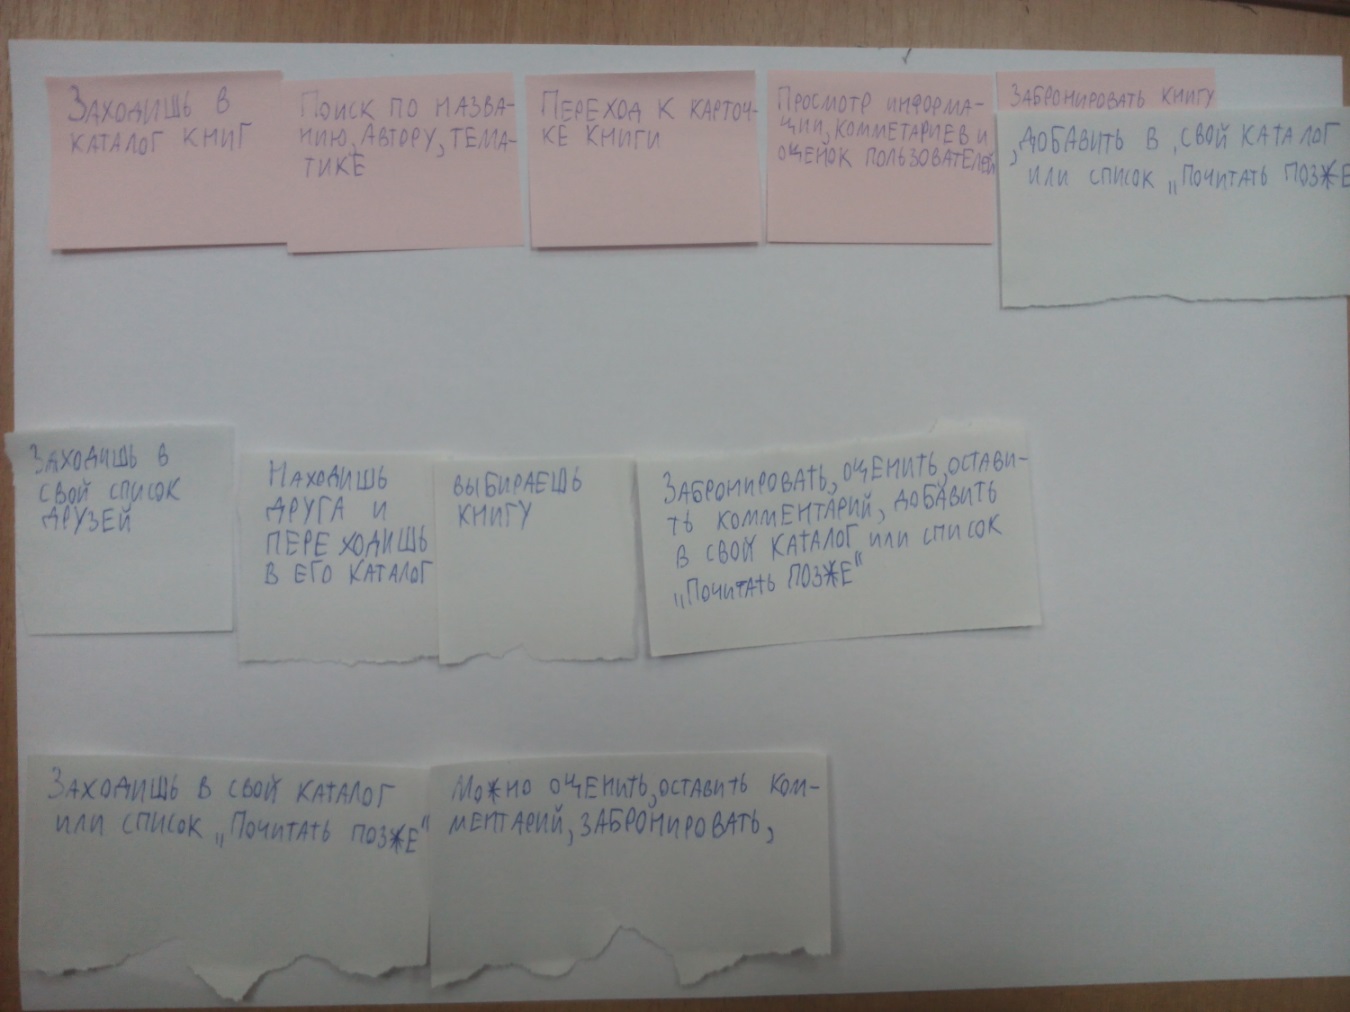 Заходишь в
каталог книг
Поиск по назва-
нию, автору, тема-
тике
Переход к карточ-
ке книги
Просмотр информа-
ции, комметариев и
оценок пользователей
Забронировать книгу
, добавить в свой каталог
или список „Почитать позже
Заходишь в
свой список
друзей
Находишь
друга и
переходишь
в его каталог
выбираешь
книгу
Забронировать, оценить, остави-
ть комментарий, добавить
в свой каталог или список
„Почитать позже“
Заходишь в свой каталог
или список „Почитать позже“
Можно оценить, оставить ком-
ментарий, забронировать,